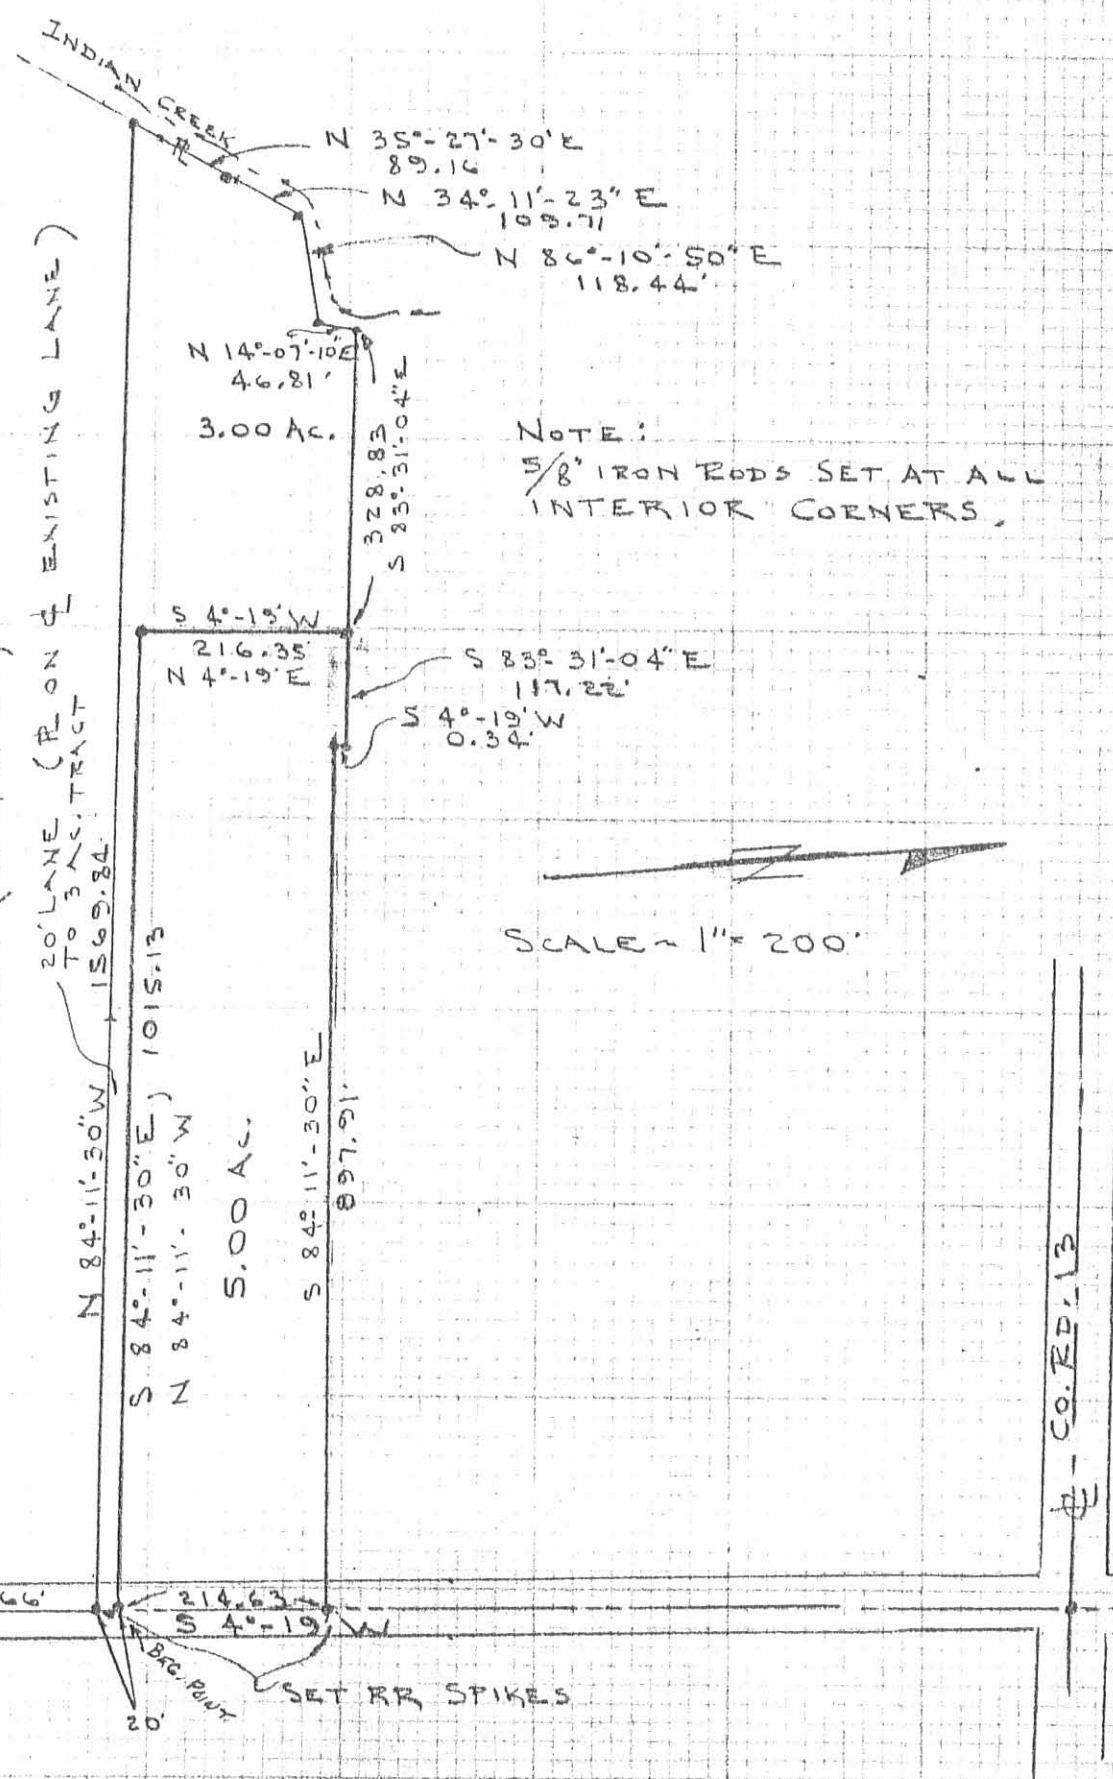 INDIAN CREEK
N 35°-27'-30"E
89.16
N 34°-11'-23" E
N 86°-10'-50" E
118.44'
N 14°-07'-10"E
46.81'
3.00 Ac.
328.83
S 83°-31'-04"E
NOTE:
5/8" IRON RODS SET AT ALL
INTERIOR CORNERS.
S 4°-19' W
216.35
N 4°-19' E
S 83°-31'-04" E
117.22'
S 4°-19' W
0.34'
20' LANE (PL ON CL EXISTING LANE)
TO 3 AC. TRACT
N 84°-11'-30"W 1569.84
S 84°-11'-30"E, 1015.13
N 84°-11'-30"W
5.00 Ac.
S 84°-11'-30"E
897.91'
SCALE ~ 1" = 200'
CL - CO. RD. 13
66'
214.63
S 4°-19' W
BEG. POINT
SET RR SPIKES
20'